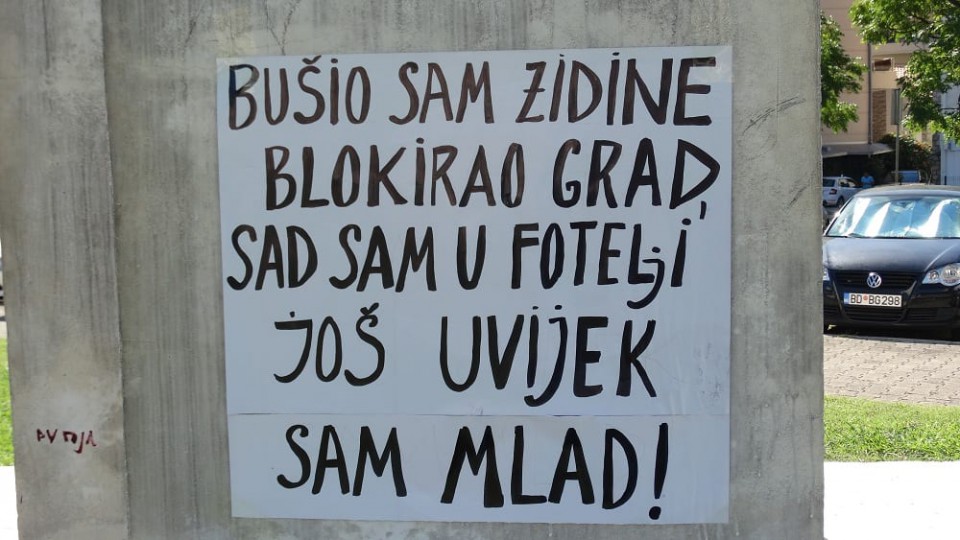 BUŠIO SAM ZIDINE
BLOKIRAO GRAD,
SAD SAM U FOTELjI
JOŠ UVIJEK
SAM MLAD!
BD BG298